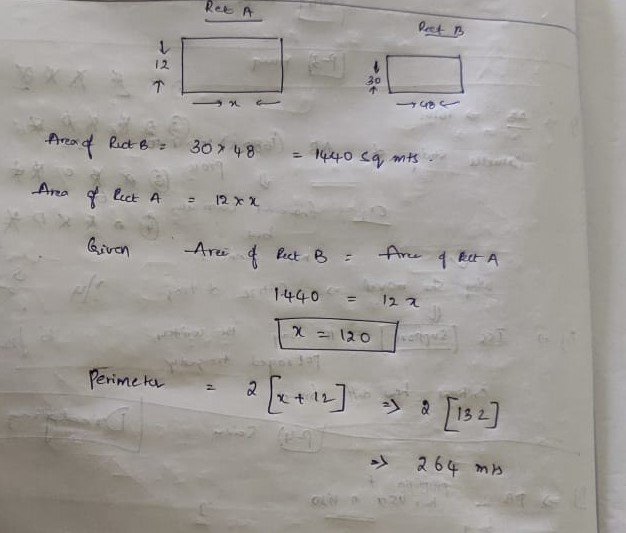 Rect A
Rect B
12
x
30
48
Area of Rect B = 30 × 48 = 1440 sq mts.
Area of Rect A = 12 × x
Given Area of Rect B = Area of Rect A
1440 = 12 x
x = 120
Perimeter = 2 [x + 12] => 2 [132]
=> 264 mts